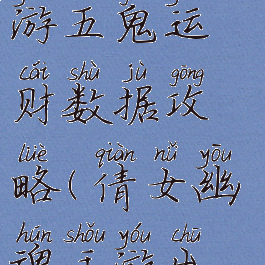 游五鬼运
cái shù jù gōng
财数据攻
lüè qiàn nǚ yōu
略(倩女幽
hún shǒu yóu chū
魂手游出